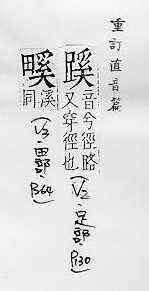 重訂直音篇
蹊
音兮徑路
又穿徑也
(V2.足部.P130)
㽾
溪
同
(V2.田部.P64)